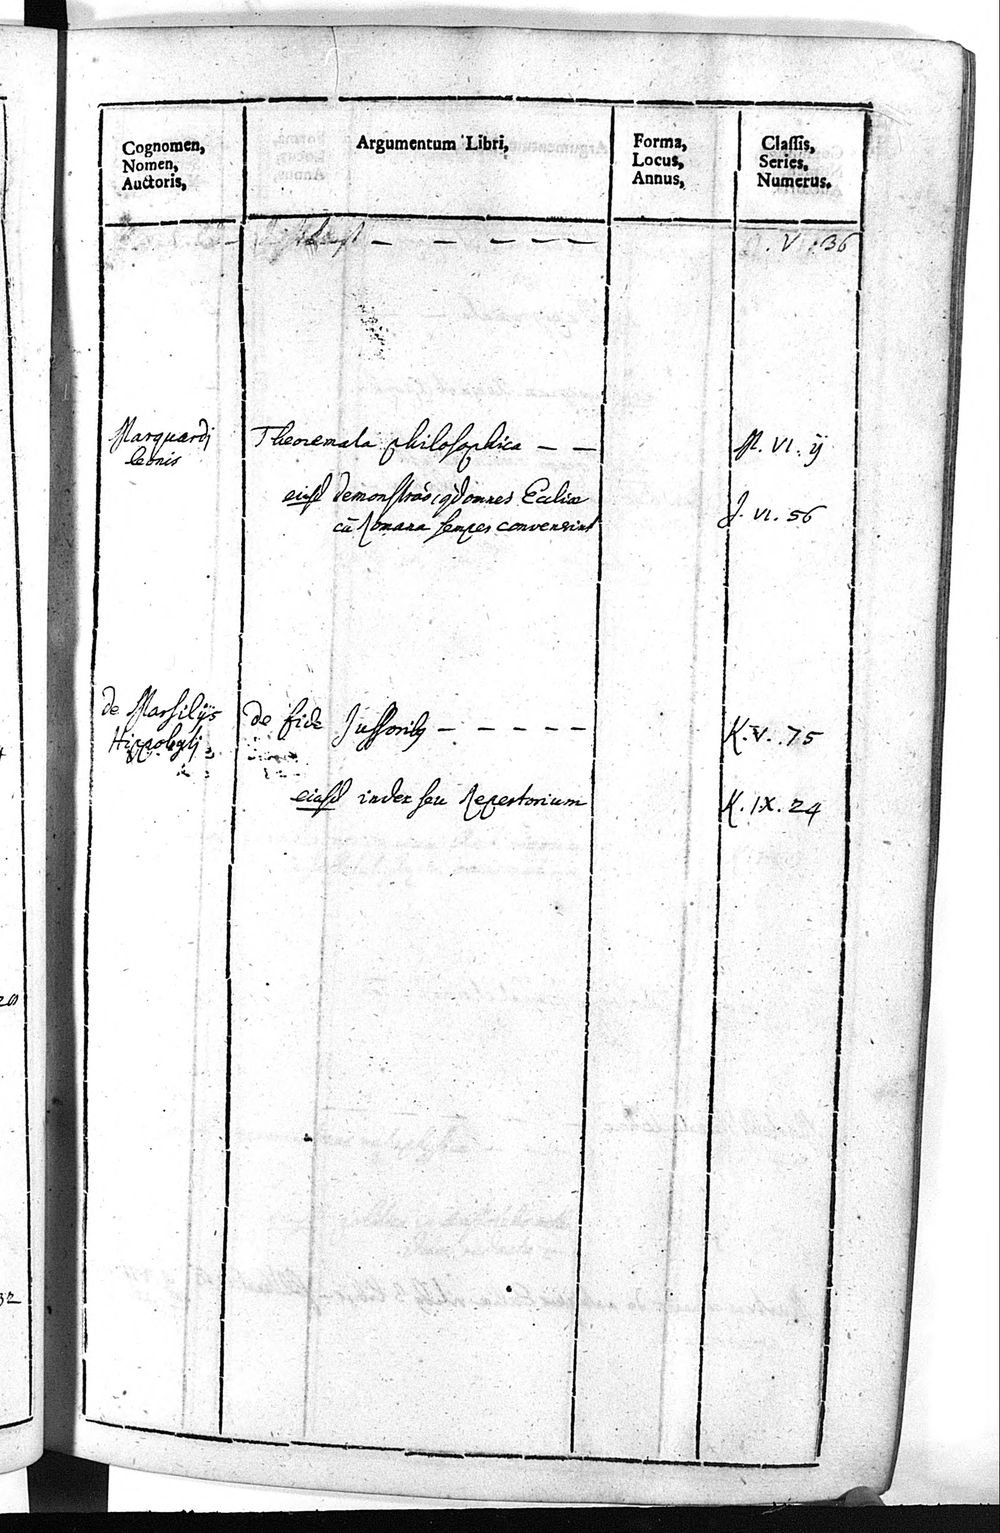 Cognomen,
Nomen,
Auctoris,
Argumentum Libri,
Forma,
Locus,
Annus,
Classis,
Series,
Numerus.
. V . 36
Marquardi
leonis
Theoremata philosophica — —
M. VI. ij
eiusd demonstrao, qd omnes Eccliæ
cũ Romana semper convenerint
J. VI. 56
de Marsilijs
Hippolyti
de fide Jussorib9 — — — — —
K. V. 75
eiusd index seu Repertorium
K. IX. 24